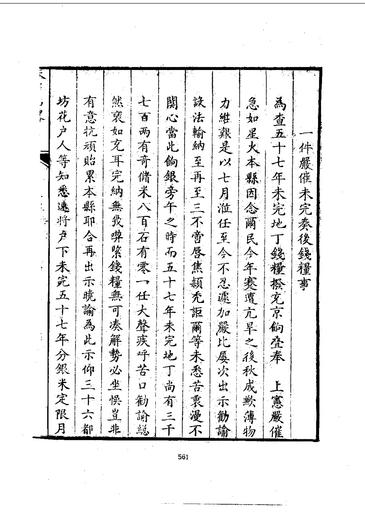 一件嚴催未完奏後錢糧事
為查五十七年未完地丁錢糧撥充京餉疊奉　上憲嚴催
急如星火本縣因念爾民今年叠遭亢旱之後秋成歉薄物
力維艱是以七月涖任至今不忍遽加嚴比屢次出示勸諭
設法輸納至再至三不啻唇焦頴禿詎爾等未悉苦衷漫不
關心當此餉銀旁午之時而五十七年未完地丁尚有三千
七百兩有奇備米八百石有零一任大聲疾呼苦口勸諭總
然裒如充耳完納無幾興漿錢糧無可湊解勢必坐悞豈非
有意抗頑貽累本縣耶合再出示曉諭為此示仰三十六都
坊花户人等知悉速將户下未完五十七年分銀米定限月
561